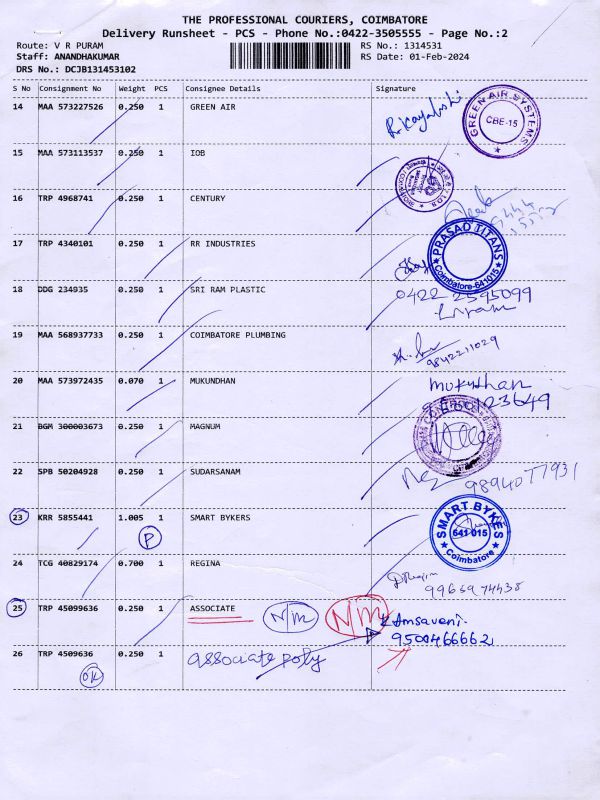 THE PROFESSIONAL COURIERS, COIMBATORE
Delivery Runsheet - PCS - Phone No.:0422-3505555 - Page No.:2
Route: V R PURAM
Staff: ANANDHAKUMAR
DRS No.: DCJB131453102
RS No.: 1314531
RS Date: 01-Feb-2024
S No Consignment No Weight PCS Consignee Details Signature
14 MAA 573227526 0.250 1 GREEN AIR
GREEN AIR SYSTEMS CBE-15
15 MAA 573113537 0.250 1 IOB
16 TRP 4968741 0.250 1 CENTURY
17 TRP 4340101 0.250 1 RR INDUSTRIES
PRASAD TITANS Coimbatore-641015
18 DDG 234935 0.250 1 SRI RAM PLASTIC
0422 2595099
19 MAA 568937733 0.250 1 COIMBATORE PLUMBING
9842211029
20 MAA 573972435 0.070 1 MUKUNDHAN
mukundhan
23649
21 BGM 300003673 0.250 1 MAGNUM
22 SPB 50204928 0.250 1 SUDARSANAM
9894077931
23 KRR 5855441 1.005 1 SMART BYKERS
P
SMART BYKES 641 015 Coimbatore
24 TCG 40829174 0.700 1 REGINA
9965974438
25 TRP 45099636 0.250 1 ASSOCIATE N/m N/m
K Amsaveni
9500466662
26 TRP 4509636 0.250 1 associate poly
OK